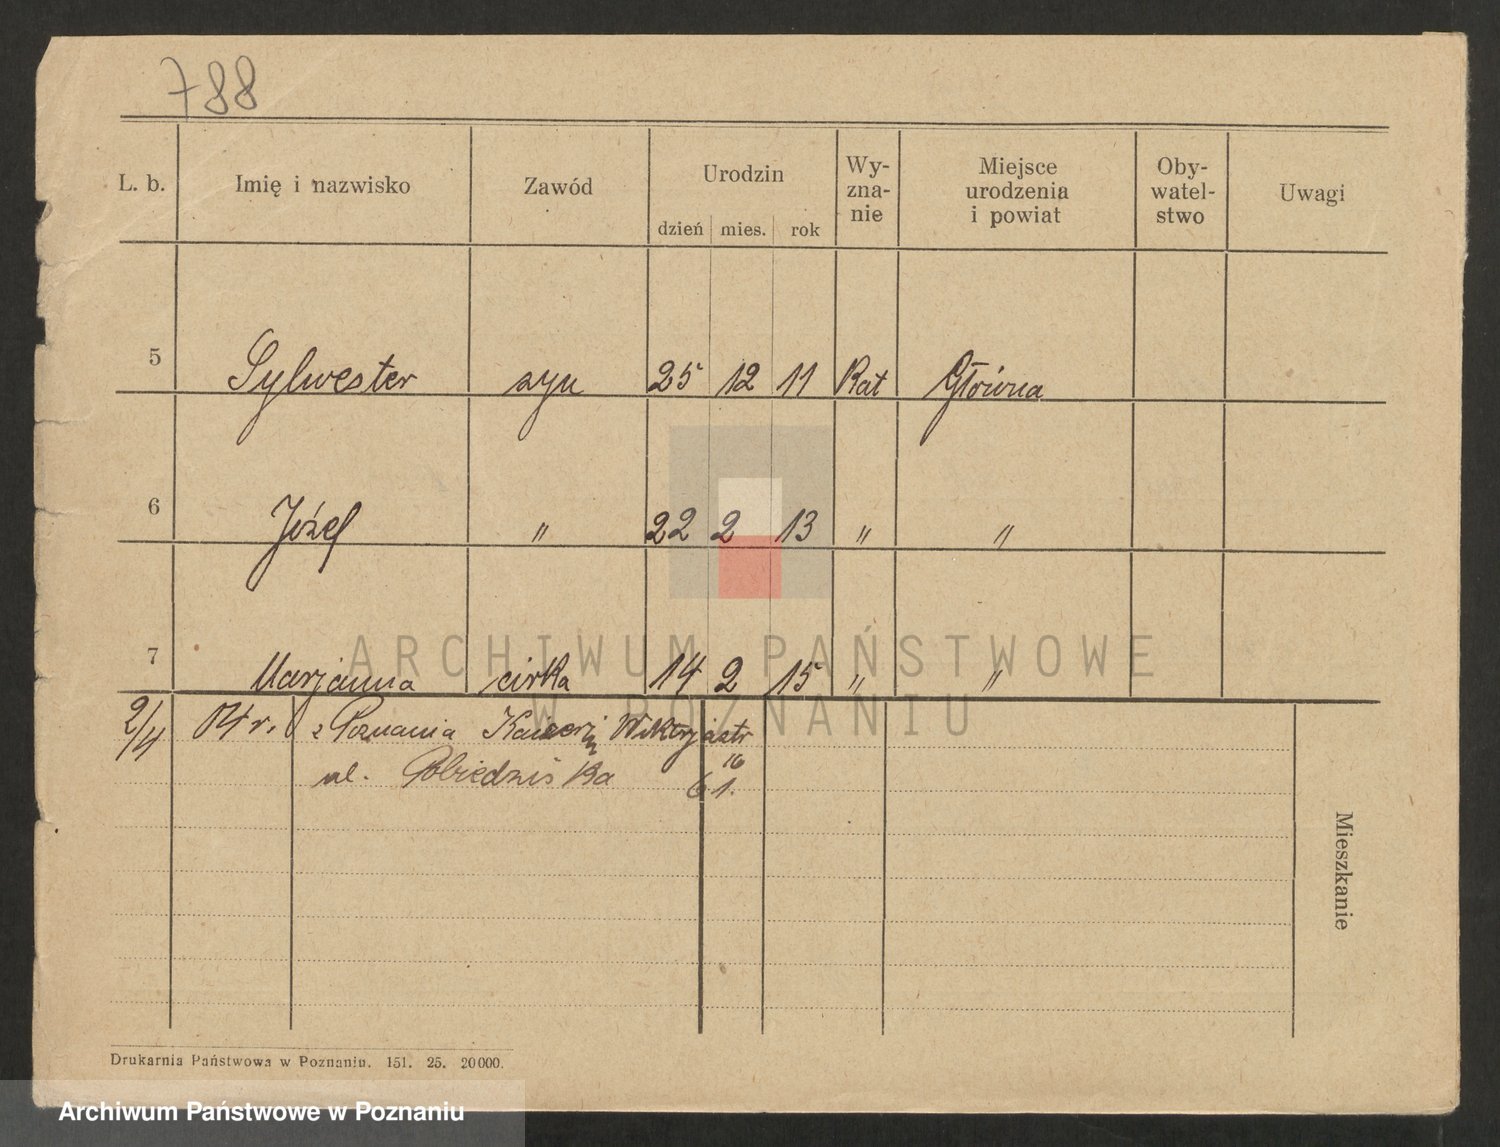 788
L. b. Imię i nazwisko Zawód Urodzin dzień mies. rok Wy-zna-nie Miejsce urodzenia i powiat Oby-watel-stwo Uwagi
5 Sylwester syn 25 12 11 Kat Główna
6 Józef " 22 2 13 " "
7 Marjanna córka 14 2 15 " "
ARCHIWUM PAŃSTWOWE
W POZNANIU
2/4 04 r. z Poznania 16
ul. Pobiedziska 61.
Mieszkanie
Drukarnia Państwowa w Poznaniu. 151. 25. 20000.
Archiwum Państwowe w Poznaniu